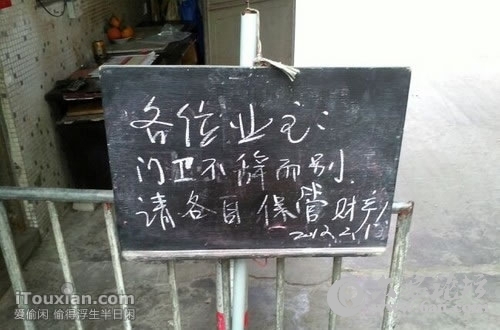 各位业主：
门卫不辞而别，
请各自保管财产！
2012.2.1
iTouxian.com
爱偷闲 偷得浮生半日闲